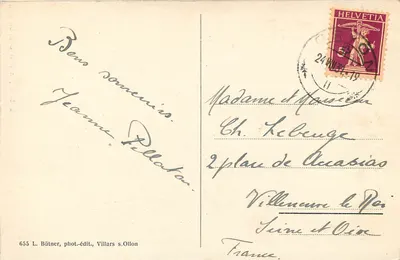 Bons souvenirs.
Jeanne Pillata
HELVETIA
24 VII 31-19
Madame et Monsieur
Ch. Lebeuge
2 place de
Villeneuve le Roi
Seine et Oise
France
655 L. Bütner, phot.-édit., Villars s.Ollon